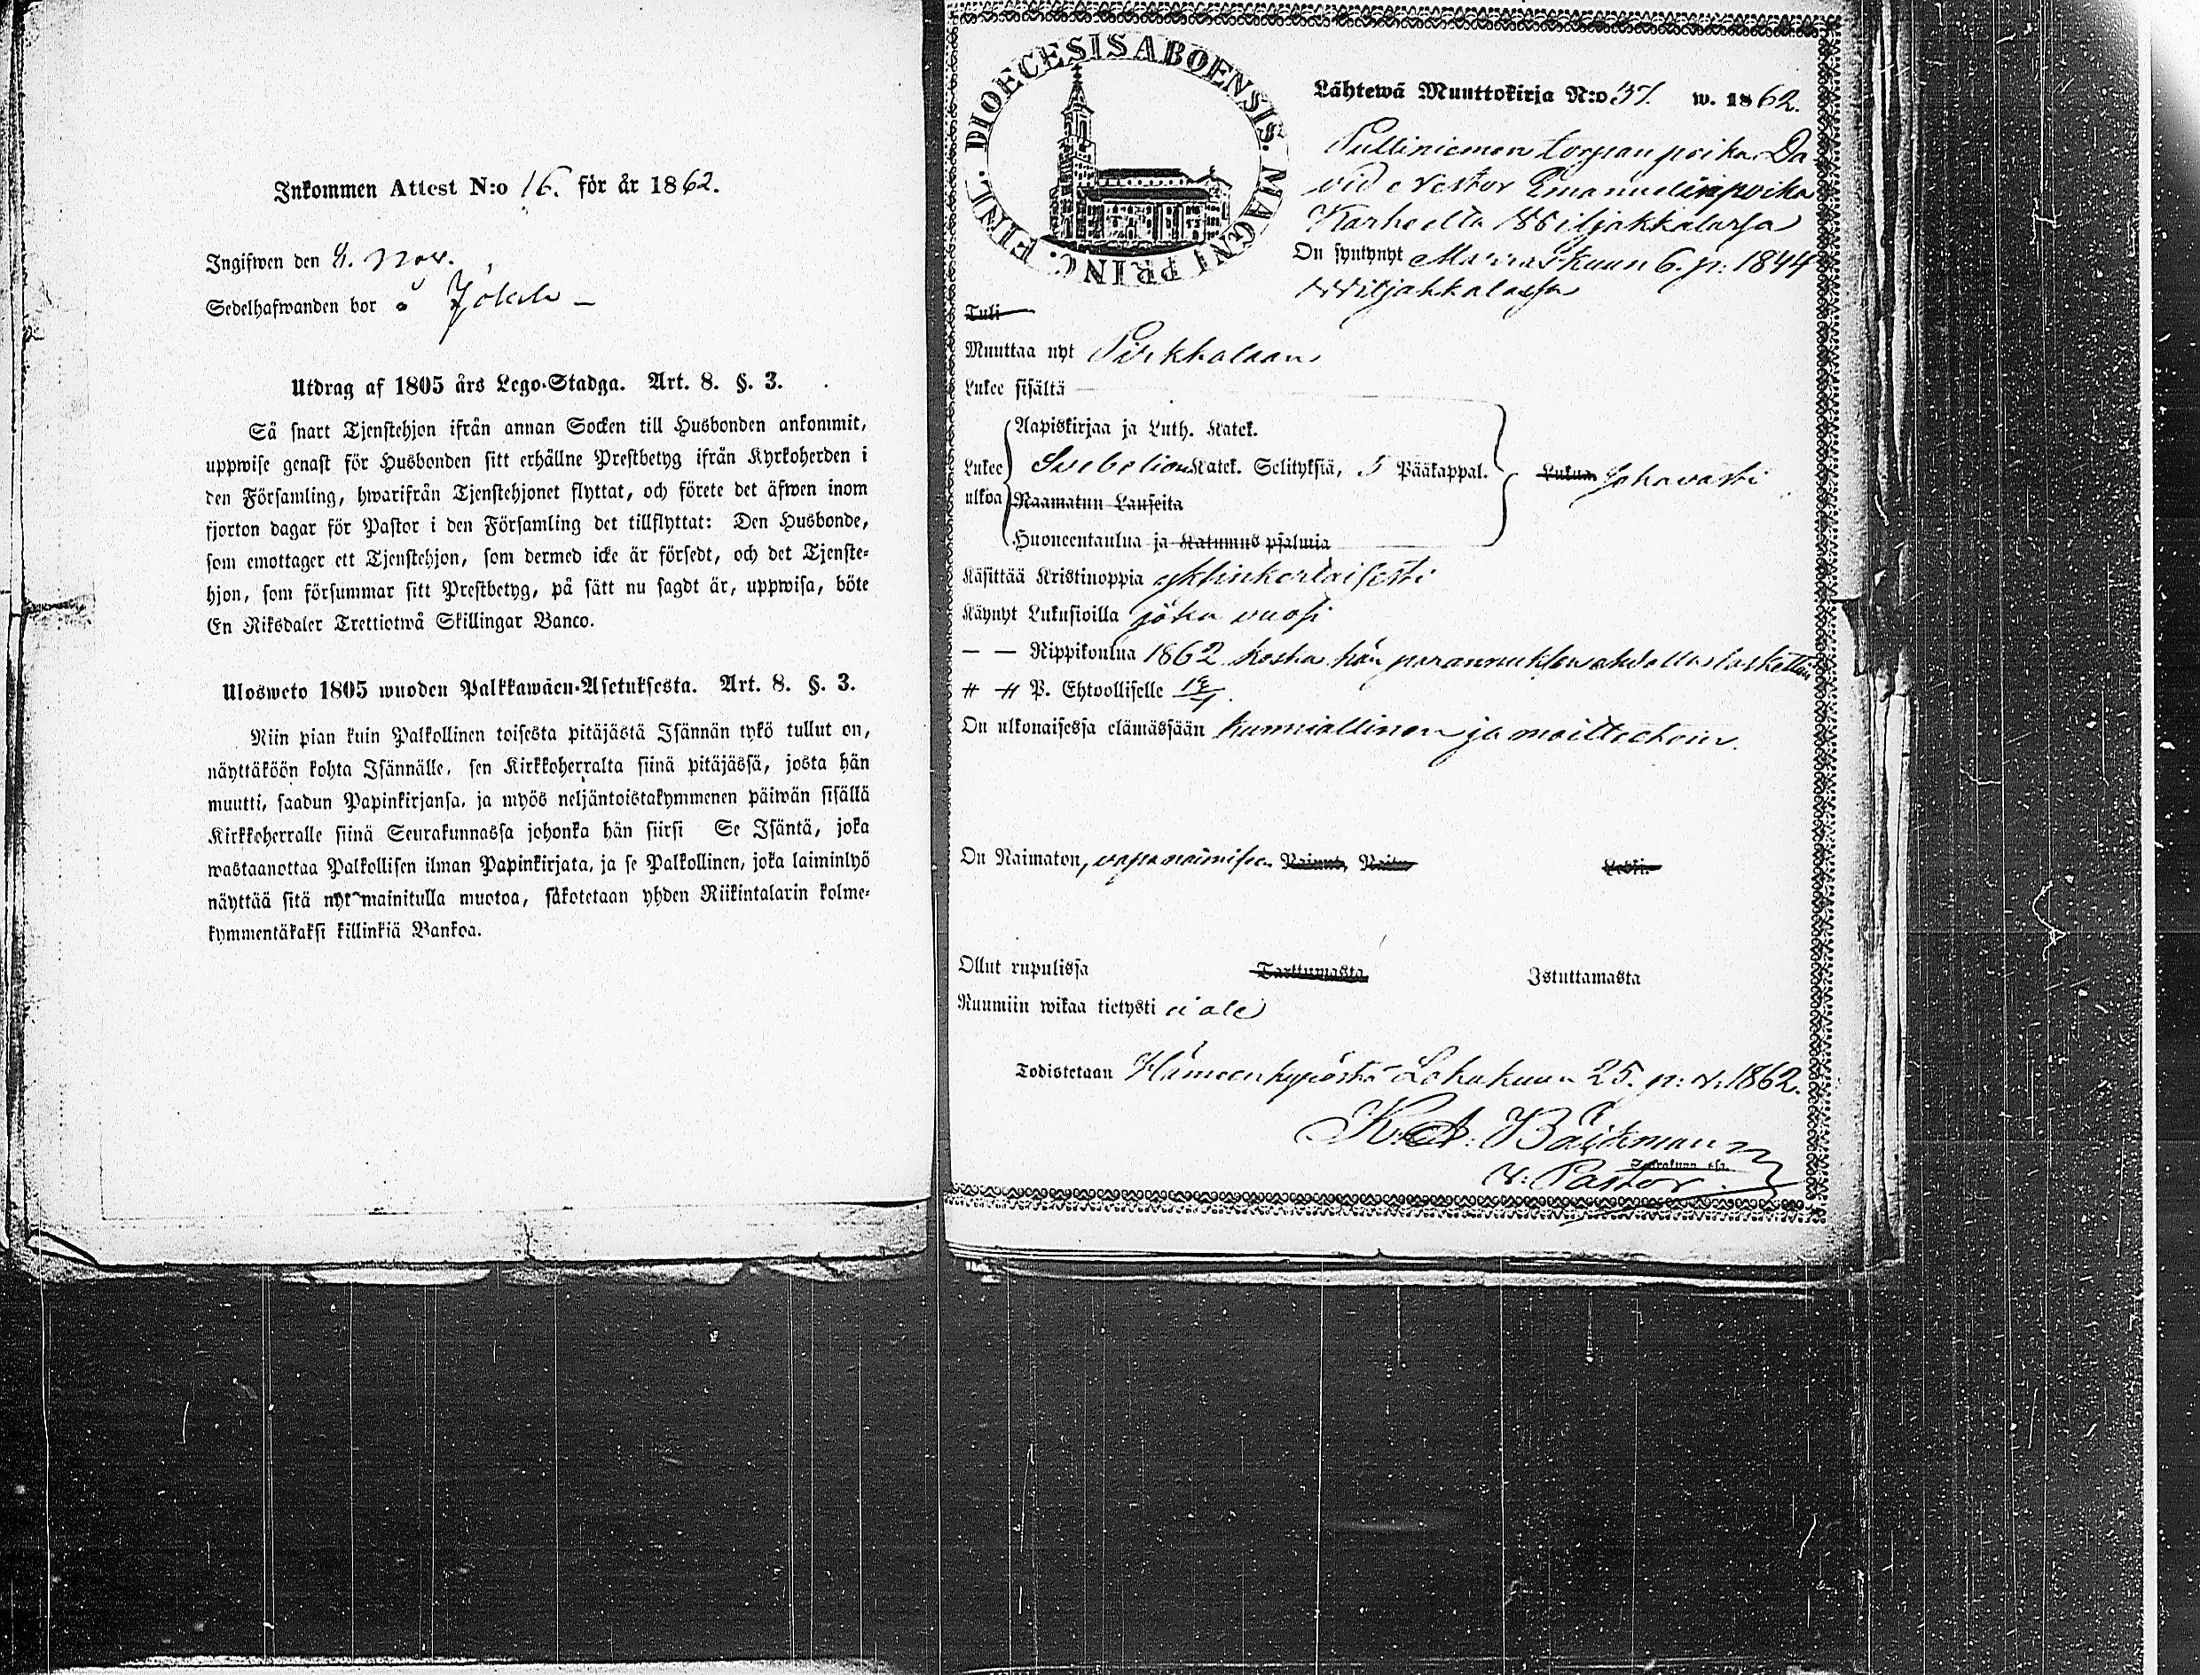 Inkommen Attest N:o 16. för år 1862.
Ingifwen den 4. Nov.
Sedelhafwanden bor å
Utdrag af 1805 års Lego-Stadga. Art. 8. §. 3.
Så snart Tjenstehjon ifrån annan Socken till Husbonden ankommit,
uppwise genast för Husbonden sitt erhållne Prestbetyg ifrån Kyrkoherden i
den Församling, hwarifrån Tjenstehjonet flyttat, och förete det äfwen inom
fjorton dagar för Pastor i den Församling det tillflyttat: Den Husbonde,
som emottager ett Tjenstehjon, som dermed icke är försedt, och det Tjenste-
hjon, som försummar sitt Prestbetyg, på sätt nu sagdt är, uppwisa, böte
En Riksdaler Trettiotwå Skillingar Banco.
Ulosweto 1805 wuoden Palkkawäen-Asetuksesta. Art. 8. §. 3.
Niin pian kuin Palkollinen toisesta pitäjästä Isännän tykö tullut on,
näyttäköön kohta Isännälle, sen Kirkkoherralta siinä pitäjässä, josta hän
muutti, saadun Papinkirjansa, ja myös neljäntoistakymmenen päiwän sisällä
Kirkkoherralle siinä Seurakunnassa johonka hän siirsi Se Isäntä, joka
wastaanottaa Palkollisen ilman Papinkirjata, ja se Palkollinen, joka laiminlyö
näyttää sitä nyt mainitulla muotoa, sakotetaan yhden Riikintalarin kolme-
kymmentäkaksi killinkiä Bankoa.
DIOECESIS ABOENSIS. MAGNI PRINC. FINL.
Lähtewä Muuttokirja N:o 37. w. 1862.
Pulliniemen torpan poika Da
vid Nestor Emanuelinpoika
Karheelta Wiljakkalassa
On syntynyt Marraskuun 6. p: 1844
Wiljakkalassa
Tuli
Muuttaa nyt Pirkkalaan
Lukee sisältä
Aapiskirjaa ja Luth. Katek.
Lukee ulkoa Svebelion Katek. Selityksiä, 5 Pääkappal. Lukua
Raamatun Lauseita
Huoneentaulua ja Katumus psalmia
Käsittää Kristinoppia yksinkertaisesti
Käynyt Lukusioilla joka vuosi
— — Rippikoulua 1862 koska hän
P. Ehtoolliselle
On ulkonaisessa elämässään kunniallinen ja moitteetoin.
On Naimaton, vapa naimiseen Nainut, Naitu Leski.
Ollut rupulissa Tarttumasta Istuttamasta
Ruumiin wikaa tietysti ei ole
Todistetaan Hämeenkyröstä Lokakuun 25. p: v. 1862.
K. A. Bäckman
v. Pastor.